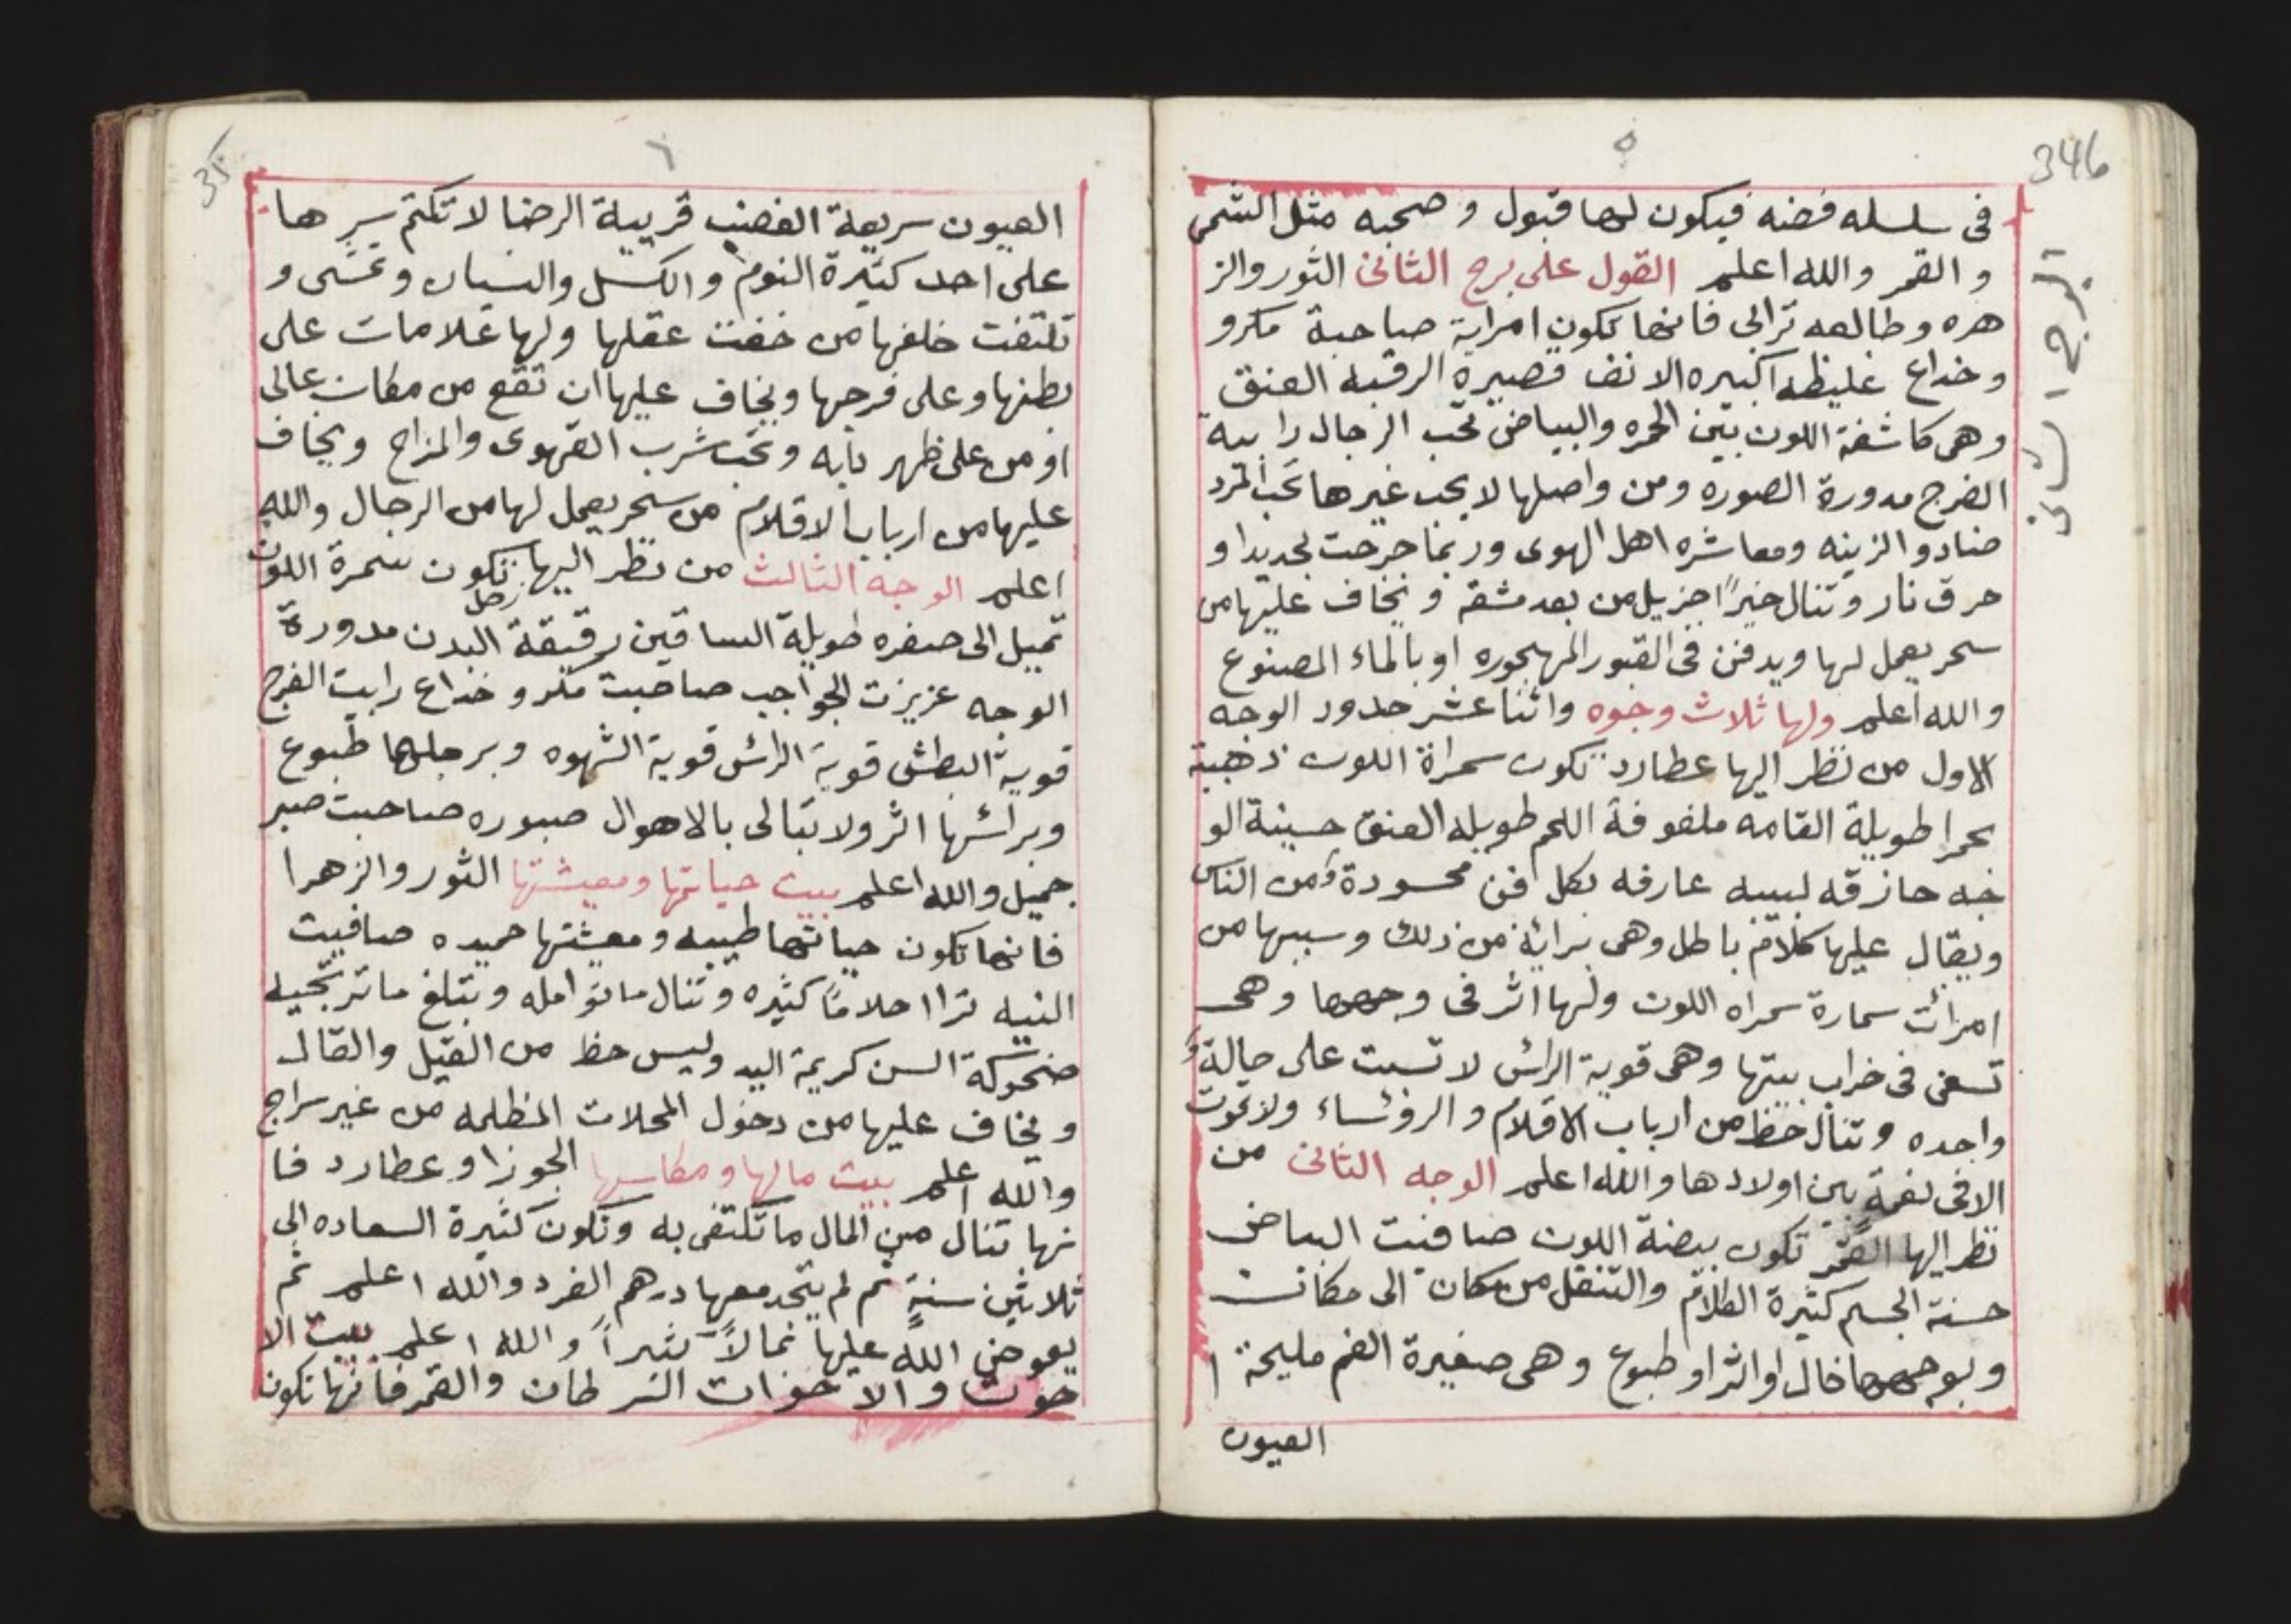 346
٥
البرج الثاني
في سلسله فضه فيكون لها قبول و صحبه مثل الشمس
و القمر والله اعلم القول على برج الثاني الثور والز
هره وطالعه ترابي فانها تكون امراية صاحبة مكرو
وخداع غليظه اكبيره الانف قصيرة الرقبه العنق
وهي كاشفة اللون بين الحمره والبياض تحب الرجال رابية
الفرج مدورة الصوره ومن واصلها لا يحب غيرها تحب المرد
ضنادو الزينه ومعاشره اهل الهوى وربما جرحت بحديدا و
حرق نار وتنال خيرًا جزيل من بعد مشقة ويخاف عليها من
سحر يعمل لها ويدفن في القبور المهجوره او بالماء المصنوع
والله اعلم ولها ثلاث وجوه واثنا عشر حدود الوجه
الاول من نظر اليها عطارد تكون سمراة اللون ذهبية
بحمرا طويلة القامه ملفوفة اللحم طويله العنق حسينة الو
جه حازقه لبيبه عارفه بكل فن محسودة من الناس
ويقال عليها كلام باطل وهي براية من ذلك وسببها من
امرات سمارة سمراه اللون ولها اثر في وجهها وهي
تسعى في خراب بيتها وهي قوية الرائس لا تسبت على حالة
واحده وتنال حظ من ارباب الاقلام والروئساء ولا تموت
الا في نعمة بين اولادها والله اعلم الوجه الثاني من
نظر اليها القمر تكون بيضة اللون صافنت البياض
حسنة الجسم كثيرة الكلام والتنقل من مكان الى مكانت
وبوجهها خال او اثر او طبوع وهي صغيرة الفم مليحة ا
العيون
٦
العيون سريعة الغضب قريبة الرضا لا تكتم سرها
على احد كثيرة النوم والكسل والنسيان وتمشى و
تلتفت خلفها من خفت عقلها ولها علامات على
بطنها وعلى فرجها ويخاف عليها ان تقع من مكان عالى
او من على ظهر دابه وتحب شرب القهوى والمزاح ويخاف
عليها من ارباب الاقلام من سحر يعمل لها من الرجال والله
اعلم الوجه الثالث من نظر اليها زحل تكون سمرة اللون
تميل الى صفره طويلة الساقين رقيقة البدن مدورة
الوجه عزيزت الحواجب صاحبت مكر و خداع رابيت الفرج
قوية البطش قوية الرائس قوية الشهوه وبرجلها طبوع
وبرائسها اثر ولا تبالى بالاهوال صبوره صاحبت صبر
جميل والله اعلم بيت حياتها ومعيشتها الثور والزهرا
فانها تكون حياتها طيبه ومعيشتها حميده صافيت
النيه ترا احلامًا كثيره وتنال ما توامله وتبلغ ما ترتجيه
ضحوكة السن كريمة اليد وليس حظ من القيل والقال
ويخاف عليها من دخول المحلات المظلمه من غير سراج
والله اعلم بيت مالها ومكاسبها الجوزا و عطارد فا
نها تنال من المال ما تكتفى به وتكون كثيرة السعاده الى
ثلاثين سنةٍ ثم لم يتحد معها درهم الفرد والله اعلم ثم
يعوض الله عليها بمالاً كثيراً والله اعلم بيت الا
خوت والاخوات السرطان والقمر فانها تكون